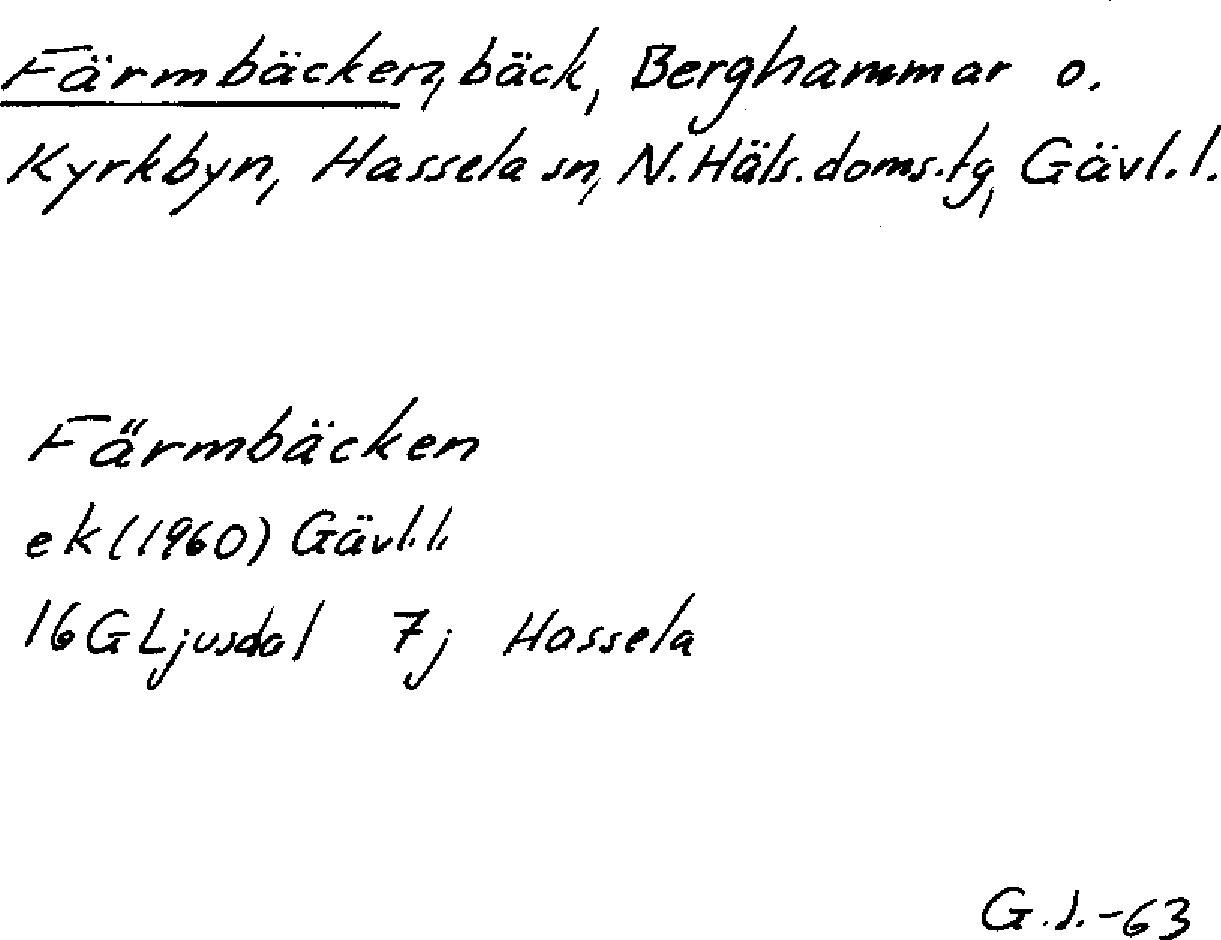 Färmbäcken, bäck, Berghammar o.
Kyrkbyn, Hassela sn, N. Häls. doms. tg, Gävl. l.
Färmbäcken
ek (1960) Gävl. l.
16G Ljusdal 7j Hassela
G. J. -63